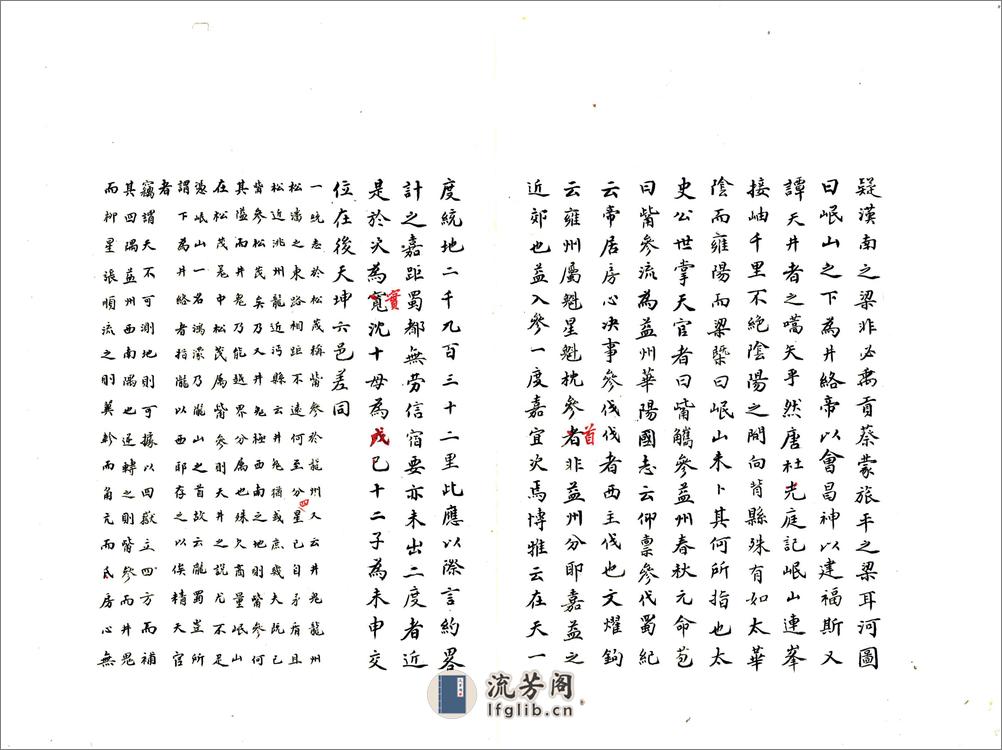 疑漢南之梁非必禹貢蔡蒙旅平之梁耳河圖
曰岷山之下為井絡帝以會昌神以建福斯又
譚天井者之嚆矢乎然唐杜光庭記岷山連峯
接岫千里不絕陰陽之間向背縣殊有如太華
陰而雍陽而梁槩曰岷山未卜其何所指也太
史公世掌天官者曰觜觿參益州春秋元命苞
曰觜參流為益州華陽國志云仰稟參伐蜀紀
云帝居房心决事參伐伐者西主伐也文耀鉤
云雍州屬魁星魁枕參者首非益州分耶嘉益之
近郊也益入參一度嘉宜次焉博雅云在天一
度統地二千九百三十二里此應以際言約畧
計之嘉距蜀都無劳信宿要亦未出二度者近
是於次為寬實沈十母為戊己十二子為未申交
位在後天坤六邑差同
一統志於松茂稱觜參於龍州又云井鬼龍州
松潘之東路相距不遠何至分星四已自矛盾且
松近洮州龍近沔縣云井鬼猶或庶幾大抵已
皆參松茂矣乃又井鬼極西南之地則觜參何
其隘而井鬼乃能越界分属也殊欠商量岷山
在松茂居中松茂属觜參則天井之説尤不足
憑岷山一名鴻濛乃隴山之首故云隴蜀豈所
謂下為井絡者指隴以西耶存之以俟精天官
者
竊謂天不可測地則可據以四嶽立四方而補
其四隅益州西南隅也逆轉之則觜參而井鬼
而柳星張順流之則翼軫而角亢而氐房心無
流芳阁
lfglib.cn